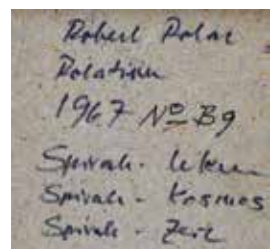 Robert Rotar
Rotation
1967 No B9
Spirale - Leben
Spirale - Kosmos
Spirale - Zeit